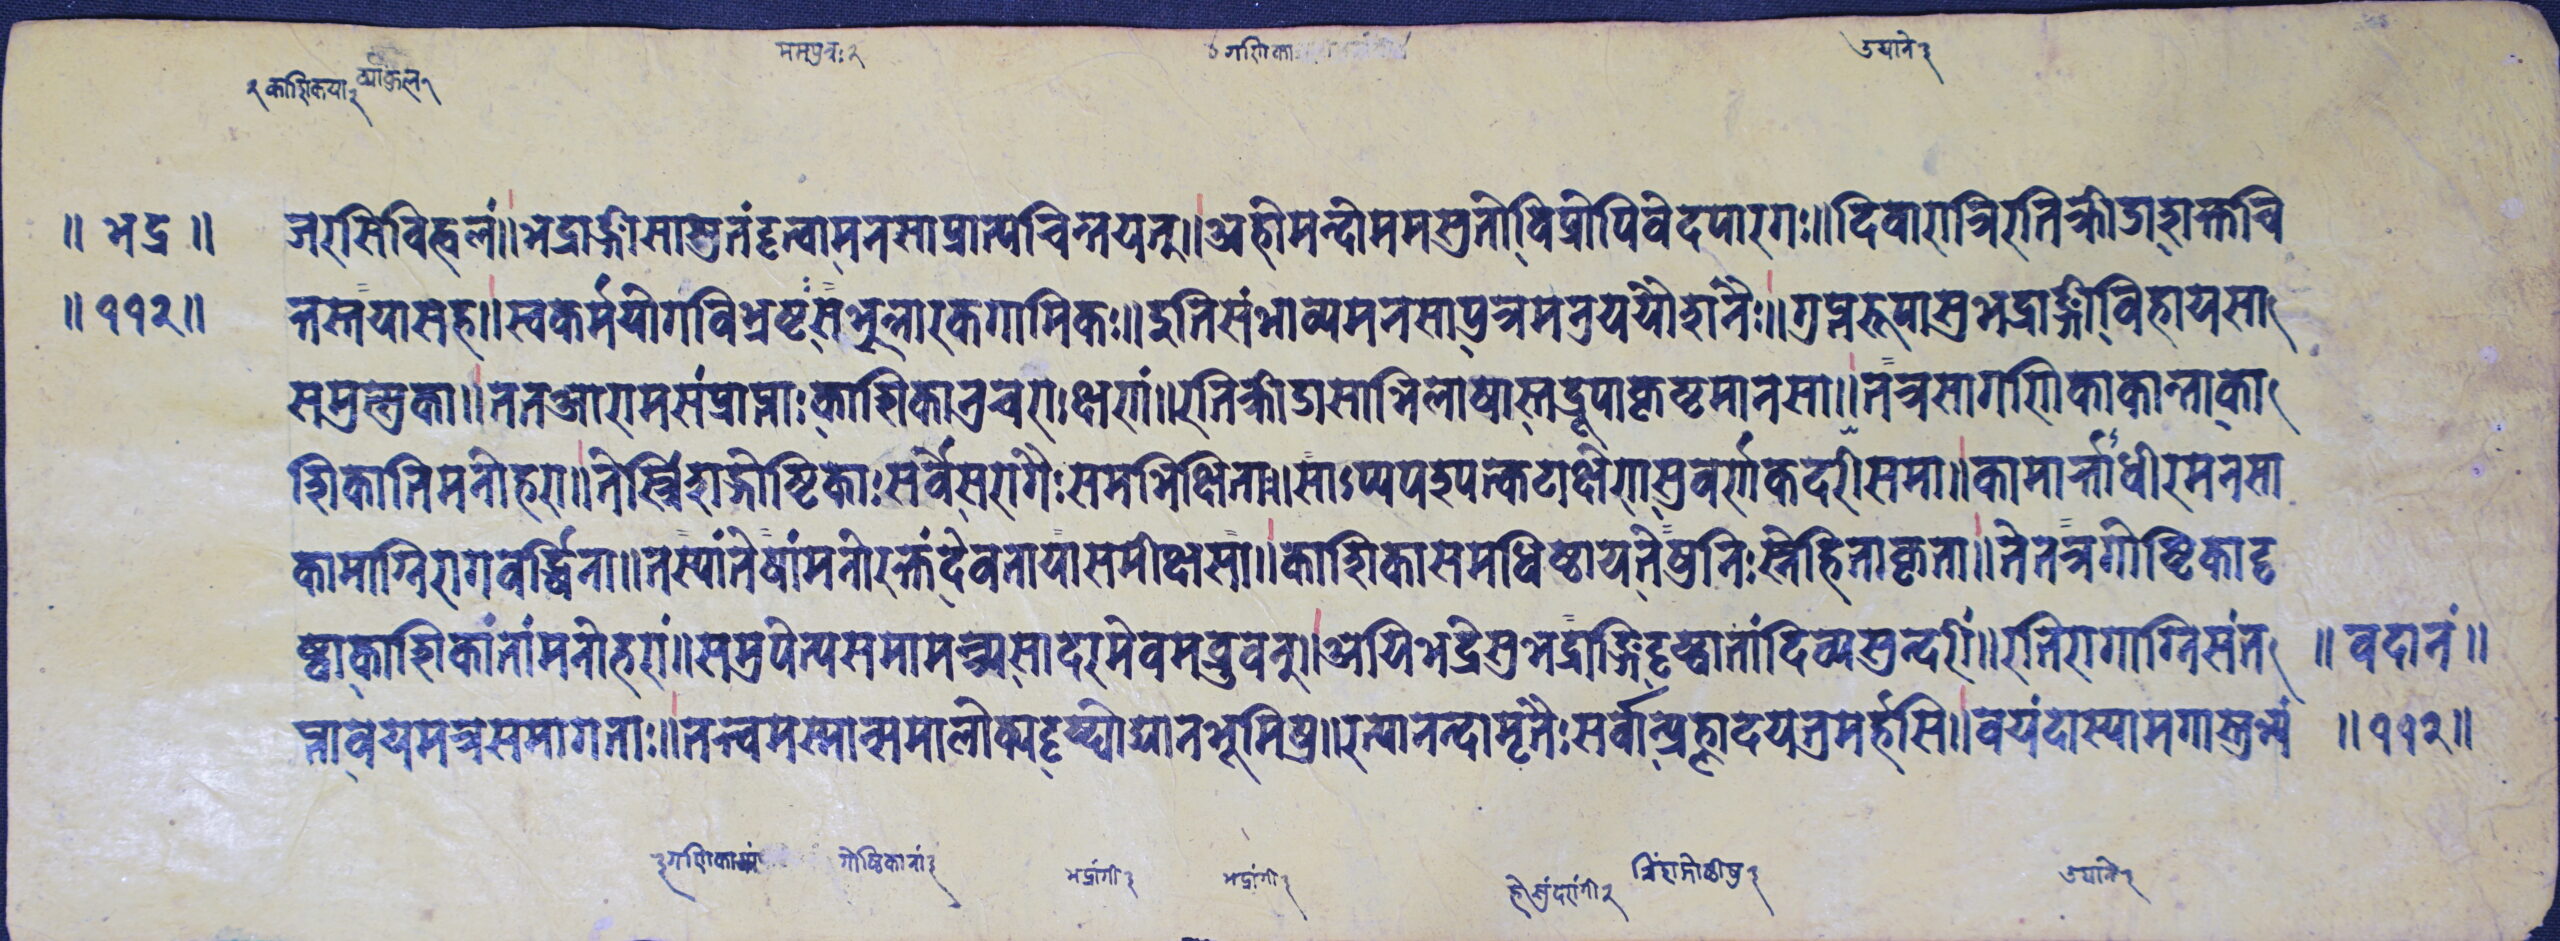 ममपुत्रः २
गणिका
उद्याने ३
२ काशिकया ३ व्याकुल १
॥ भद्र ॥ जरसिविह्वलं॥भद्राङ्गीसासुतंदृष्ट्वामनसाप्रात्यचिन्तयत्॥अहोमन्दोममसुतोविप्रोपिवेदपारगः॥दिवारात्रिरतिक्रीडाशक्तचि
॥ ११२ ॥ त्तस्तयासह॥स्वकर्मयोगविभ्रष्टःसभून्नारकगामिकः॥इतिसंभाव्यमनसापुत्रमनुययौशनैः॥गुप्तरूपासुभद्राङ्गीविहायसा
समुत्सुका॥ततआरामसंप्राप्ताःकाशिकानुचराःक्षणां॥रतिक्रीडासाभिलाषास्तद्रूपाकृष्टमानसा॥तत्रसागणिकाकान्ताका
शिकातिमनोहरा॥तैस्त्रिंशद्गोष्टिकाःसर्वैसरागैःसमभिक्षिता॥साऽप्यपश्यत्कटाक्षेणसुवर्णकदलीसमा॥कामार्त्ताधीरमनसा
कामाग्निरागवर्द्धिता॥तस्यांतेषांमनोरक्तंदेवतायासमीक्ष्यसा॥काशिकासमधिष्ठाययतेषुनिःस्नेहिताकृता॥तेतत्रगोष्टिकादृ
ष्ट्वाकाशिकांतांमनोहरां॥समुपेत्यसमामन्त्र्यसादरमेवमब्रुवन्॥अयिभद्रेसुभद्राङ्गिदृष्ट्वातांदिव्यसुन्दरीं॥रतिरागाग्निसंत ॥ वदानं ॥
प्तावयमत्रसमागताः॥तत्त्वमस्मान्समालोक्यदृष्ट्योद्यानभूमिषु॥रत्यानन्दामृतैःसर्वान्प्रह्लादयनुमर्हसि॥वयंदास्यामगास्तुभ्यं ॥ ११२ ॥
३ गणिकायां
गोष्टिकानां ३
भद्रांगी ३
भद्रांगी ३
हेसुंदरांगी २
त्रिंशगोष्ठीषु ३
उद्याने ३